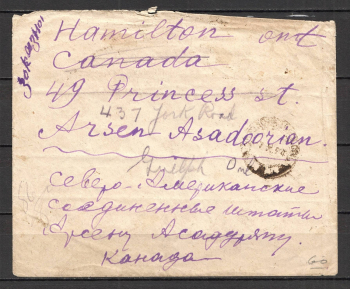 Заказное
Hamilton ont
Canada
49 Princess st.
437 York Road
Arsen Asadoorian.
Guelph Ont
Северо-Американские
соединенные штаты
Арсену Асадуряну.
Канада
60